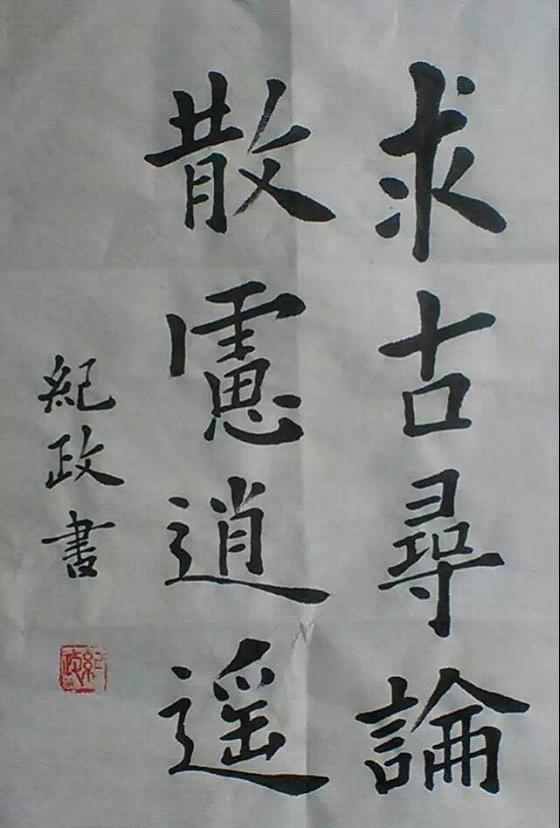 求古尋論
散慮逍遥
紀政書
紀政